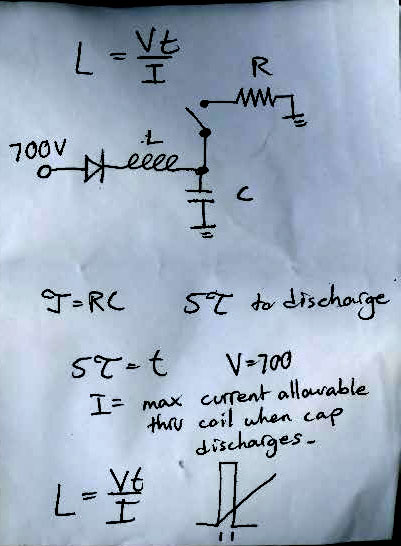 L = Vt/I
R
700V
L
C
T=RC 5τ to discharge
5τ = t V=700
I= max current allowable
thru coil when cap
discharges-
L = Vt/I